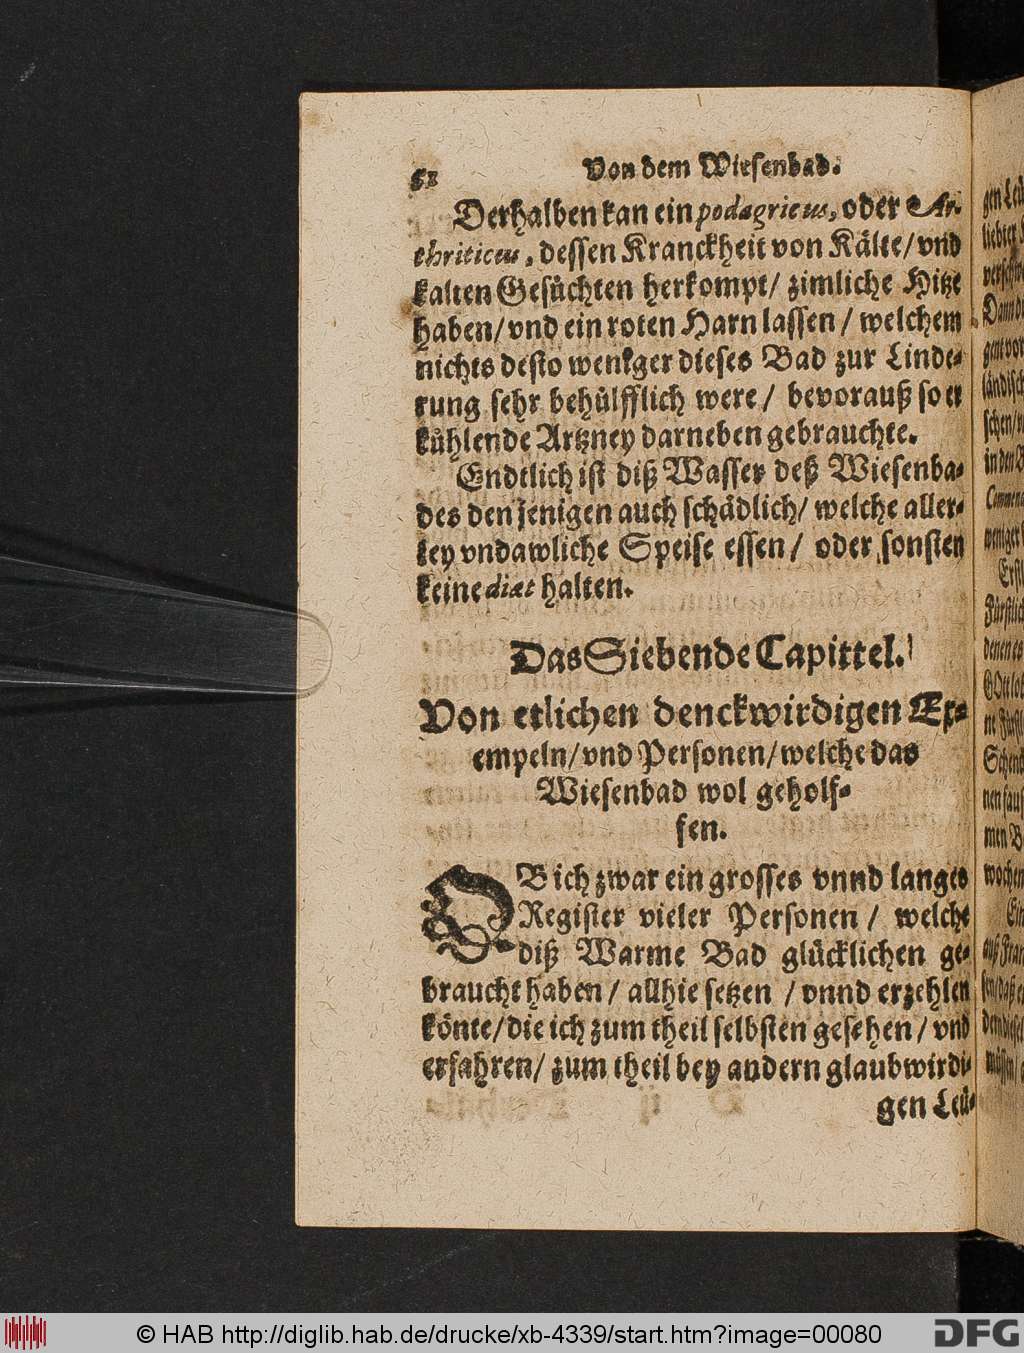 62 Von dem Wiesenbad.
Derhalben kan ein podagricus, oder Ar-
thriticus, dessen Kranckheit von Kälte/ vnd
kalten Gesüchten herkompt/ zimliche Hitze
haben/ vnd ein roten Harn lassen/ welchem
nichts desto weniger dieses Bad zur Linde-
rung sehr behülfflich were/ bevorauß so er
kühlende Artzney darneben gebrauchte.
Endtlich ist diß Wasser deß Wiesenba-
des den jenigen auch schädlich/ welche aller-
ley vndawliche Speise essen/ oder sonsten
keine diæt halten.
Das Siebende Capittel.
Von etlichen denckwirdigen Ex-
empeln/ vnd Personen/ welche das
Wiesenbad wol geholf-
fen.
OB ich zwar ein grosses vnnd langes
Register vieler Personen/ welche
diß Warme Bad glücklichen ge-
braucht haben/ allhie setzen/ vnnd erzehlen
könte/ die ich zum theil selbsten gesehen/ vnd
erfahren/ zum theil bey andern glaubwirdi-
gen Leü-
© HAB http://diglib.hab.de/drucke/xb-4339/start.htm?image=00080
DFG